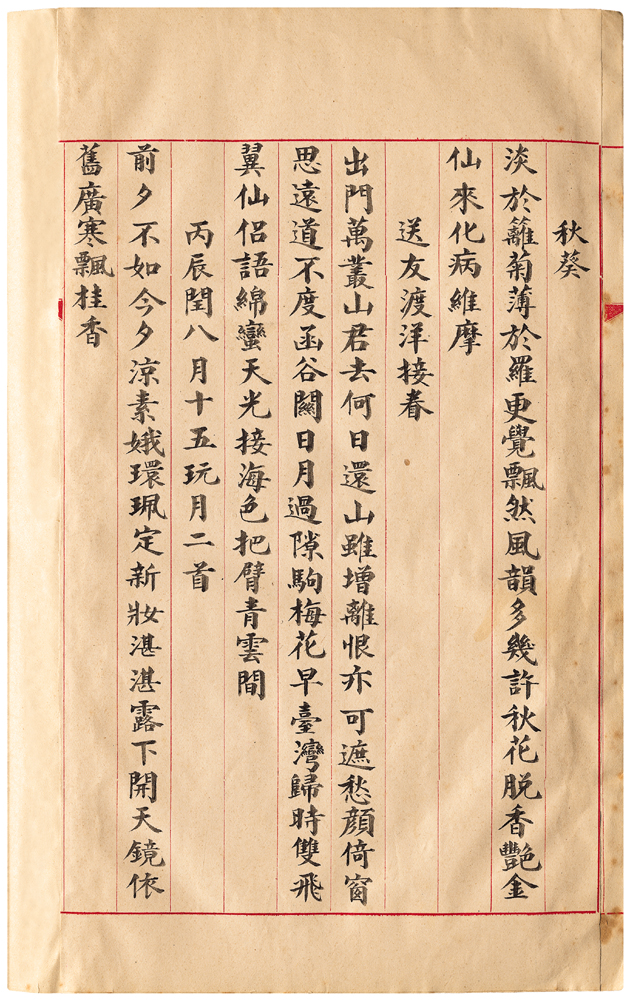 秋葵
淡於籬菊薄於羅更覺飄然風韻多幾許秋花脫香艷金
仙來化病維摩
送友渡洋接眷
出門萬叢山君去何日還山雖增離恨亦可遮愁顏倚窗
思遠道不度函谷關日月過隙駒梅花早臺灣歸時雙飛
翼仙侶語綿蠻天光接海色把臂青雲間
丙辰閏八月十五玩月二首
前夕不如今夕涼素娥環珮定新妝湛湛露下開天鏡依
舊廣寒飄桂香